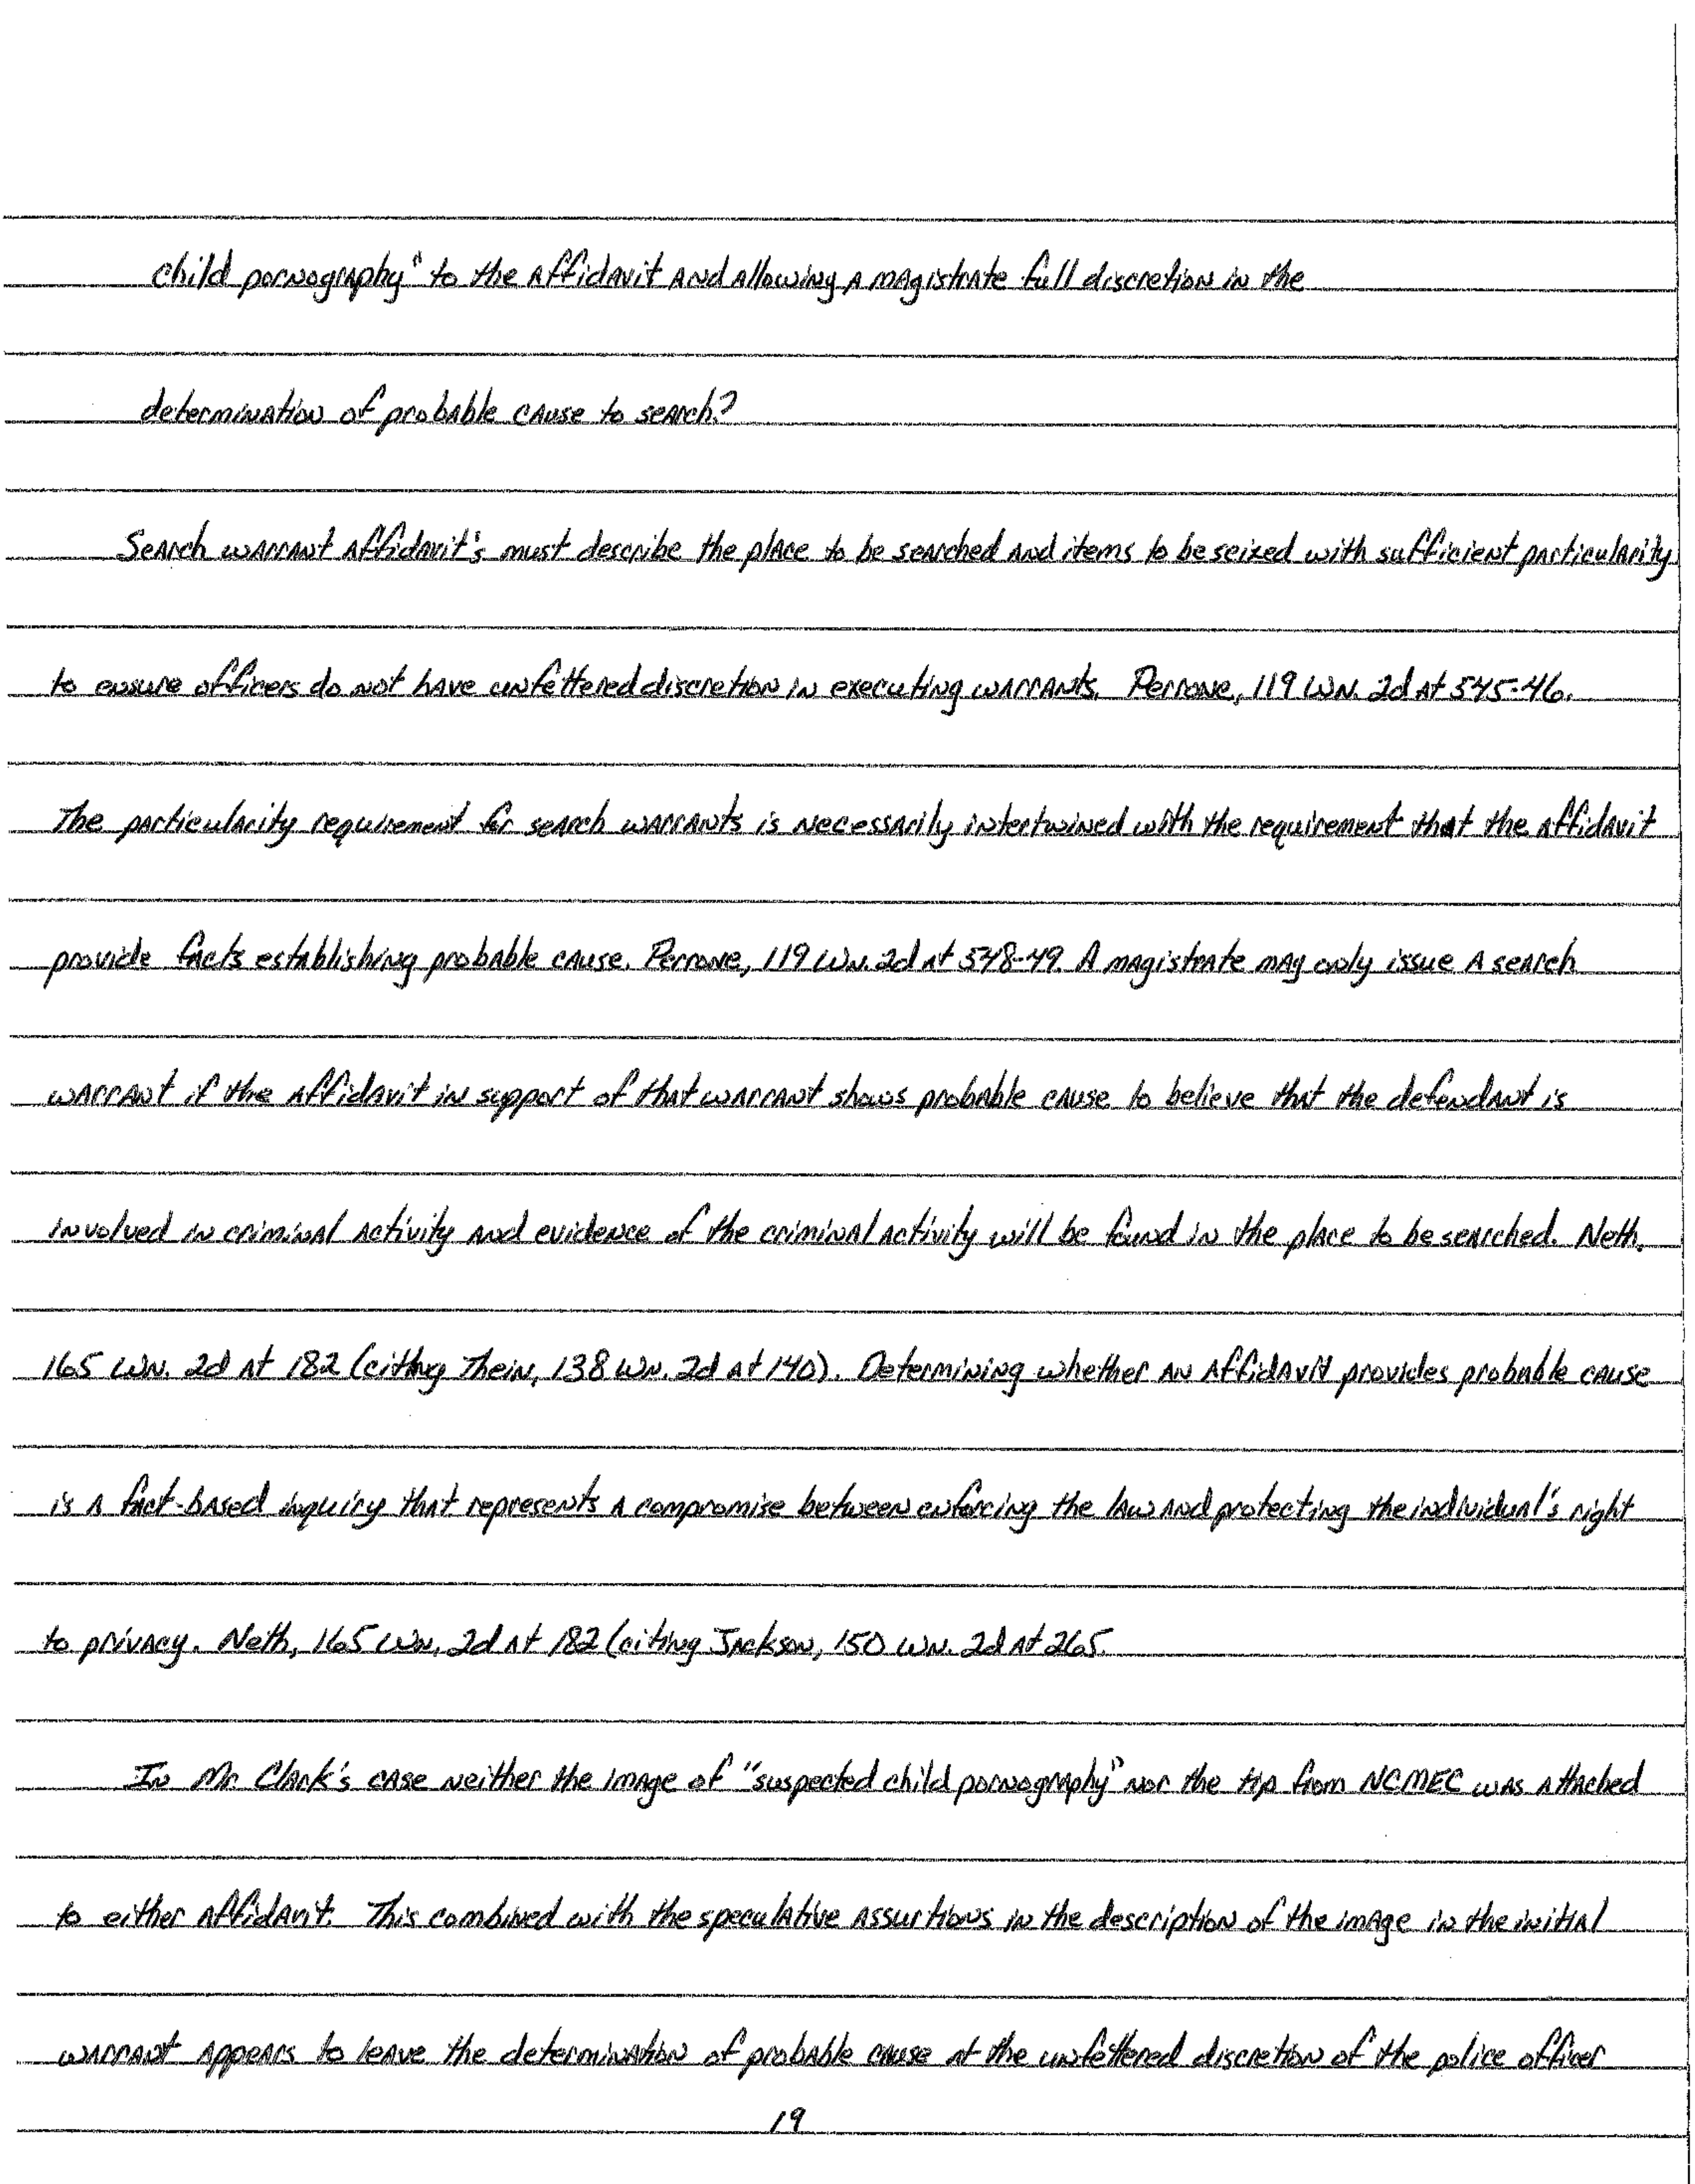 child pornography" to the affidavit and allowing a magistrate full discretion in the
determination of probable cause to search?
Search warrant affidavit's must describe the place to be searched and items to be seized with sufficient particularity
to ensure officers do not have unfettered discretion in executing warrants. Perrone, 119 Wn. 2d at 545-46.
The particularity requirement for search warrants is necessarily intertwined with the requirement that the affidavit
provide facts establishing probable cause. Perrone, 119 Wn. 2d at 548-49. A magistrate may only issue a search
warrant if the affidavit in support of that warrant shows probable cause to believe that the defendant is
involved in criminal activity and evidence of the criminal activity will be found in the place to be searched. Neth,
165 Wn. 2d at 182 (citing Thein, 138 Wn. 2d at 140). Determining whether an affidavit provides probable cause
is a fact-based inquiry that represents a compromise between enforcing the law and protecting the individual's right
to privacy. Neth, 165 Wn. 2d at 182 (citing Jackson, 150 Wn. 2d at 265.
In Mr. Clark's case neither the image of "suspected child pornography" nor the tip from NCMEC was attached
to either affidavit. This combined with the speculative assurtions in the description of the image in the initial
warrant appears to leave the determination of probable cause at the unfettered discretion of the police officer
19